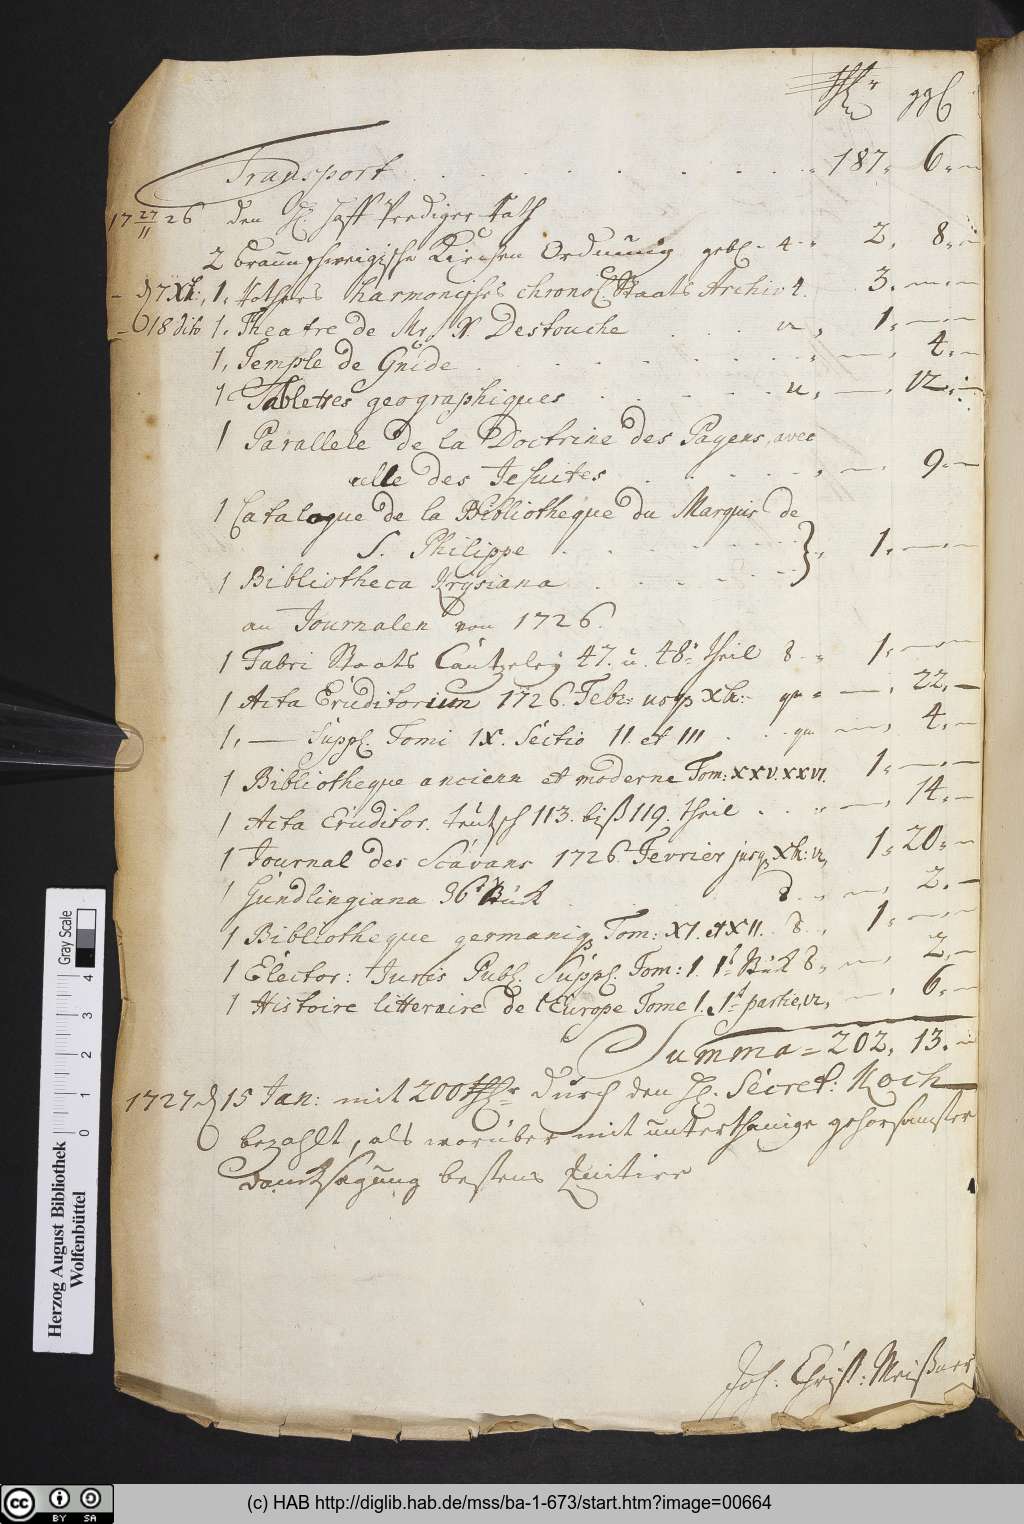 Thlr ggl
Transport 187. 6.
17 27/11 26 den H. Hoff Prediger Rath
2 Braunschweigische Kirchen Ordnung gebd. 4 2. 8.
d 7 Xbr. 1. harmonisches chronol. Staats Archiv 4. 3.
18 dito 1. Theatre de Mr. N. Destouche 12, 1.
1. Temple de Gnide 4.
1 Tablettes geographiques 12.
1 Parallele de la Doctrine des Payens, avec
celle des Jesuites 9.
1 Catalogue de la Bibliotheque du Marquis de
S. Philippe
1 Bibliotheca Krysiana } 1.
an Journalen von 1726.
1 Fabri Staats Cantzeley 47. u. 48. theil 8. 1.
1 Acta Eruditorum 1726. Febr: usq Xbr: qu 22.
1. — Suppl. Tomi IX. Sectio II et III qu 4.
1 Bibliotheque ancienn et moderne Tom: XXV. XXVI. 1.
1 Acta Eruditor. teutsch 113. biß 119. theil 14.
1 Journal des Scavans 1726. Fevrier jusq Xbr: 12, 1. 20.
1 Gundlingiana 36t Stück 8 2.
1 Bibliotheque germaniq Tom: XI. et XII. 8. 1.
1 Elector: Juris Publ. Suppl. Tom: 1. 1t Stück 8. 2.
1 Histoire litteraire de l'Europe Tome 1. 1t partie, 12, 6.
Summa = 202. 13.
1727 d 15 Jan: mit 200 Thlr durch den H. Secret: Koch
bezahlt, als worüber mit unterthänige gehorsamster
Dancksagung bestens Quitire
Joh: Christ: Meißner
Gray Scale
0 1 2 3 4
Herzog August Bibliothek
Wolfenbüttel
cc BY SA
(c) HAB http://diglib.hab.de/mss/ba-1-673/start.htm?image=00664